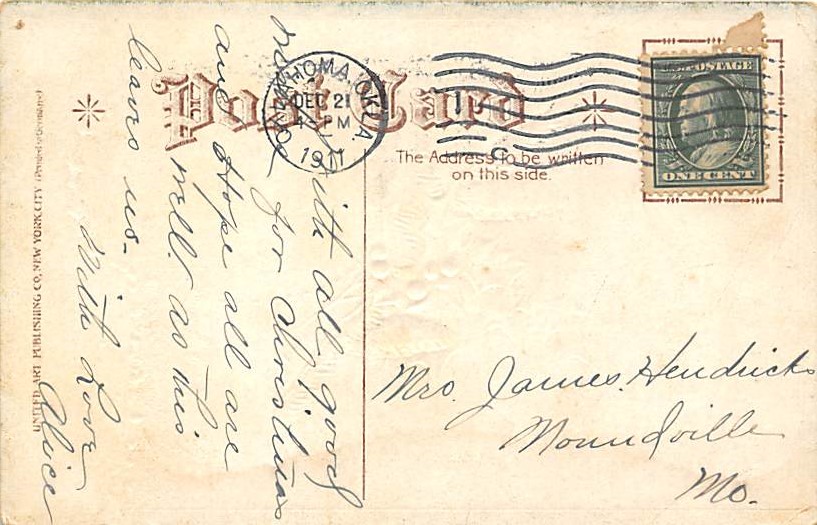 Post Card
The Address to be written
on this side.
OKLAHOMA, OKLA.
DEC 21
PM
1911
U.S. POSTAGE
ONE CENT
With all good
for Christmas
and Hope all are
well. as this
leaves us.
With Love
Alice
Mrs. James. Hendricks
Moundville
Mo.
UNITED ART PUBLISHING CO, NEW YORK CITY